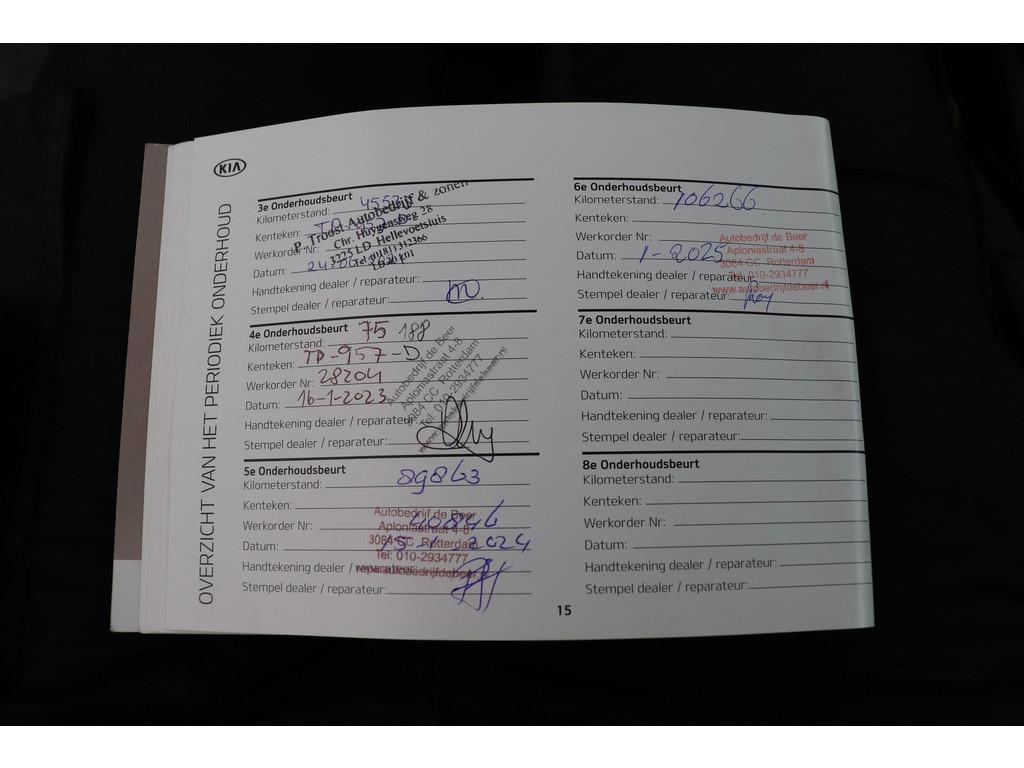 KIA
OVERZICHT VAN HET PERIODIEK ONDERHOUD
3e Onderhoudsbeurt
Kilometerstand:
Kenteken:
Werkorder Nr:
Datum:
Handtekening dealer / reparateur:
Stempel dealer / reparateur:
P. Troost Autobedrijf & zonen
Chr. Huygensweg 28
3225 LD Hellevoetsluis
4e Onderhoudsbeurt
Kilometerstand: 75 188
Kenteken: TD-957-D
Werkorder Nr: 28204
Datum: 16-1-2023
Handtekening dealer / reparateur:
Stempel dealer / reparateur:
Autobedrijf de Beer
Aploniastraat 4-8
3084 CC Rotterdam
Tel: 010-2934777
www.autobedrijfdebeer.nl
5e Onderhoudsbeurt
Kilometerstand: 89863
Kenteken:
Werkorder Nr:
Datum: 15-1-2024
Handtekening dealer / reparateur:
Stempel dealer / reparateur:
Autobedrijf de Beer
Aploniastraat 4-8
3084 CC Rotterdam
Tel: 010-2934777
6e Onderhoudsbeurt
Kilometerstand: 106266
Kenteken:
Werkorder Nr:
Datum: 1-2025
Handtekening dealer / reparateur:
Stempel dealer / reparateur:
Autobedrijf de Beer
Aploniastraat 4-8
3084 CC Rotterdam
Tel: 010-2934777
www.autobedrijfdebeer.nl
7e Onderhoudsbeurt
Kilometerstand:
Kenteken:
Werkorder Nr:
Datum:
Handtekening dealer / reparateur:
Stempel dealer / reparateur:
8e Onderhoudsbeurt
Kilometerstand:
Kenteken:
Werkorder Nr:
Datum:
Handtekening dealer / reparateur:
Stempel dealer / reparateur:
15